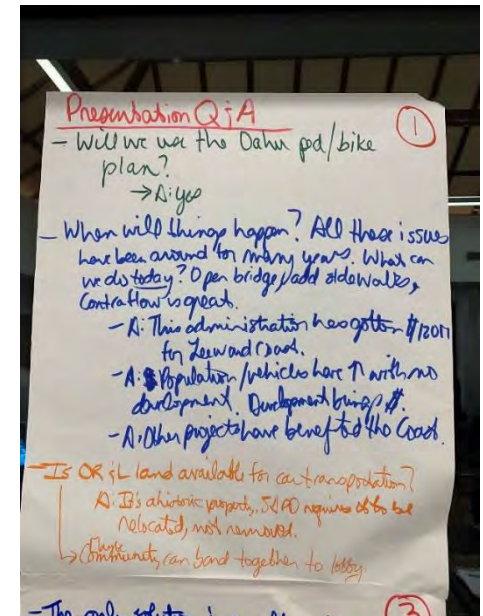 Presentation Q&A
1
- Will we use the Oahu ped/bike
plan?
→ A: yes
- When will things happen? All these issues
have been around for many years. What can
we do today? Open bridge, add sidewalks,
Contraflow is great.
- A: This administration has gotten $120M
for Leeward Coast.
- A: Population/vehicles have ↑ with no
development. Development brings $.
- A: Other projects have benefited the Coast.
- Is OR&L land available for car transportation?
A: It's a historic property, SHPD requires it to be
relocated, not removed.
↳ Community can band together to lobby.
- The only
3